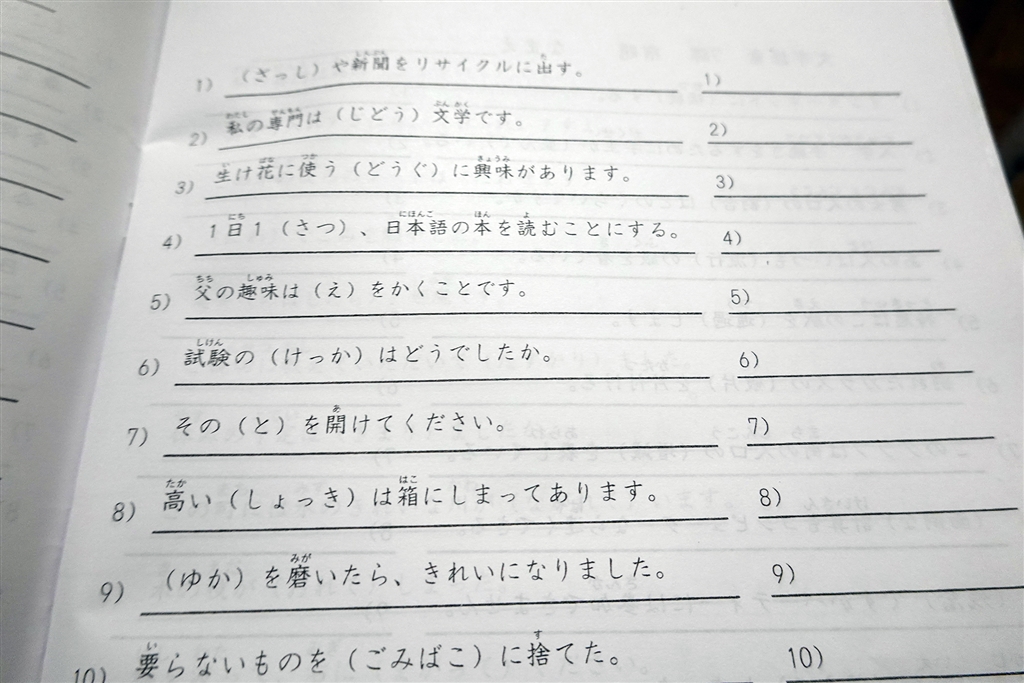 1) （ざっし）や新聞をリサイクルに出す。 1)
2) 私の専門は（じどう）文学です。 2)
3) 生け花に使う（どうぐ）に興味があります。 3)
4) 1日1（さつ）、日本語の本を読むことにする。 4)
5) 父の趣味は（え）をかくことです。 5)
6) 試験の（けっか）はどうでしたか。 6)
7) その（と）を開けてください。 7)
8) 高い（しょっき）は箱にしまってあります。 8)
9) （ゆか）を磨いたら、きれいになりました。 9)
10) 要らないものを（ごみばこ）に捨てた。 10)